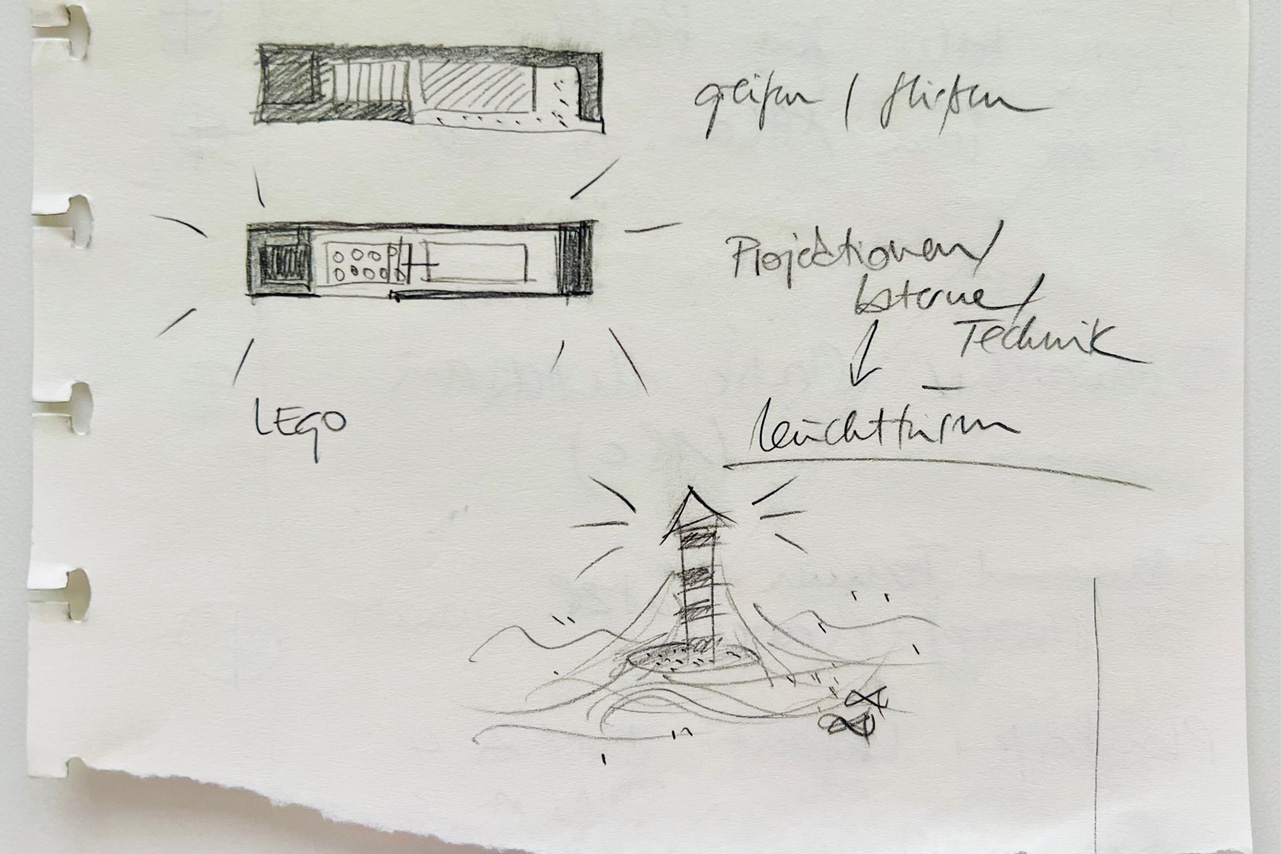 greifen / fließen
Projektionen/
Laterne/
Technik
LEGO
Leuchtturm